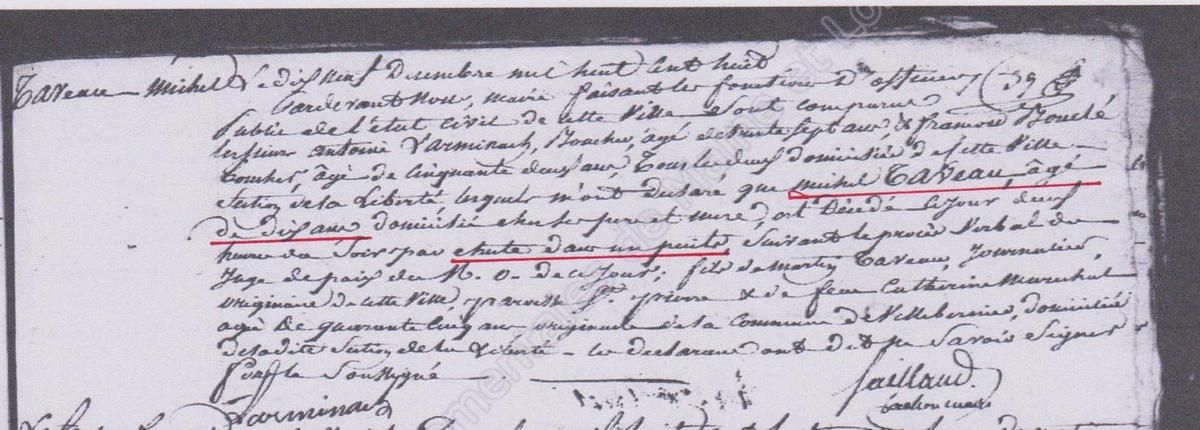 Taveau Michel Le dix neuf Decembre mil huit cent huit
Pardevant Nous, Maire faisant les fonctions d'officier (39
Public de l'état civil de cette Ville sont comparus
les sieurs antoine Larminach, Boucher, agé de trente sept ans, & francois Bouclé
boucher, agé de Cinquante deux ans, Tous les deux domiciliés de cette Ville
Section de la Liberté, lesquels m'ont declaré que Michel Taveau âgé
de dix ans domicilié chez ses pere et mere, est décédé ce jour deux
heures du soir par chute dans un puits, suivant le procès verbal du
Juge de paix du N. O. de ce jour; fils de Martin Taveau, Journalier,
originaire de cette Ville, paroisse St. pierre & de feue Catherine Marechal
agé de quarante cinq ans originaire de la Commune de Villebernier, domicilié
de ladite Section de la Liberté - les declarans ont dit ne savoir Signer
soussigné
Larminach